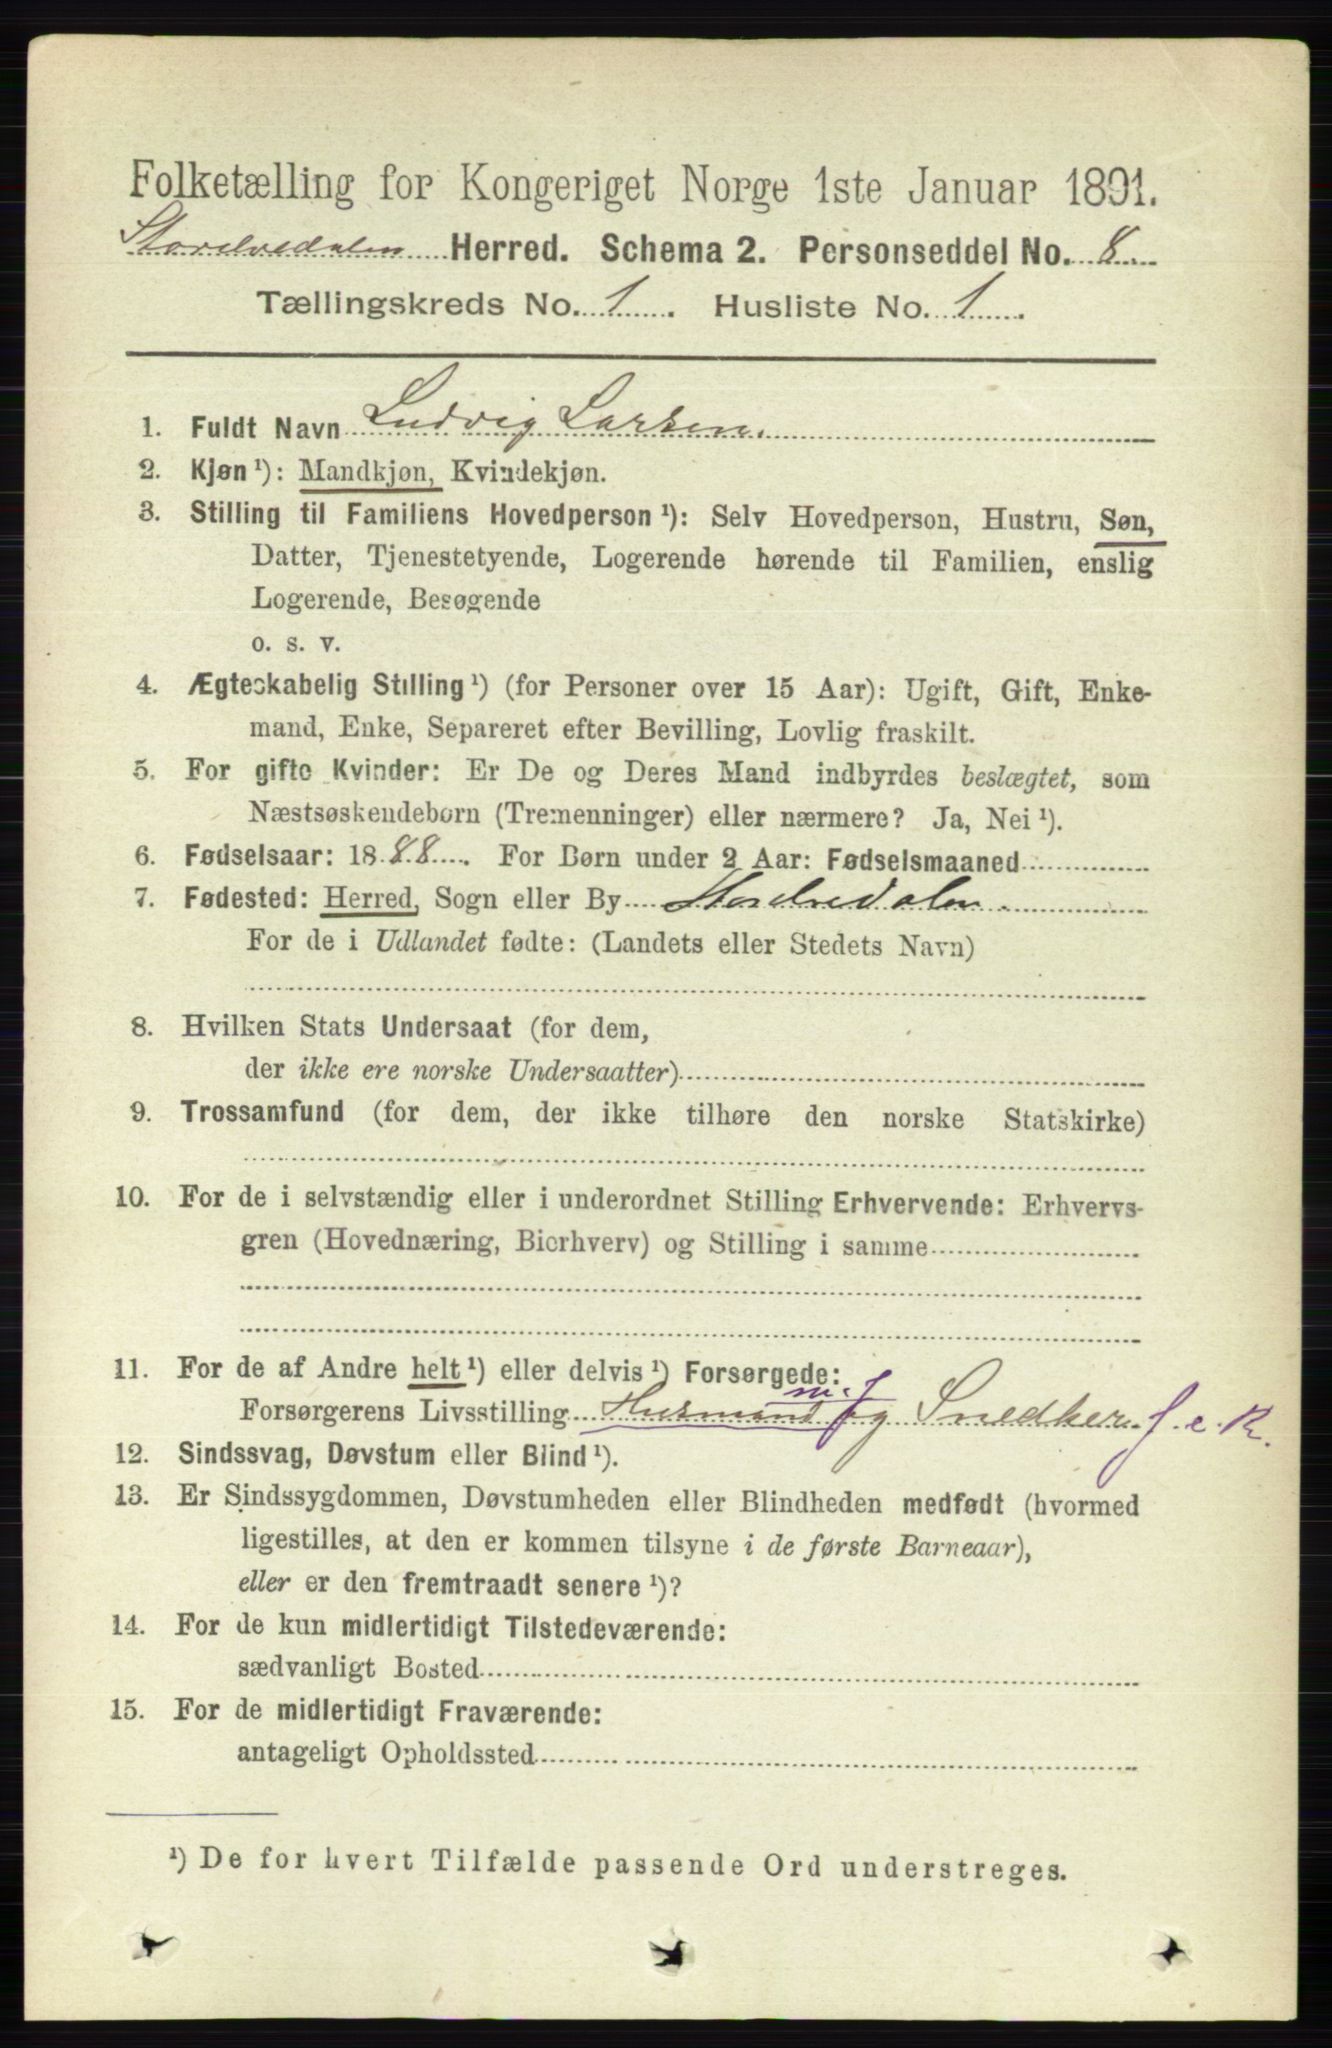 Folketælling for Kongeriget Norge 1ste Januar 1891.
Storelvedalen Herred. Schema 2. Personseddel No. 8
Tællingskreds No. 1. Husliste No. 1.
1. Fuldt Navn Ludvig Larsen.
2. Kjøn ¹): Mandkjøn, Kvindekjøn.
3. Stilling til Familiens Hovedperson ¹): Selv Hovedperson, Hustru, Søn,
Datter, Tjenestetyende, Logerende hørende til Familien, enslig
Logerende, Besøgende
o. s. v.
4. Ægteskabelig Stilling ¹) (for Personer over 15 Aar): Ugift, Gift, Enke-
mand, Enke, Separeret efter Bevilling, Lovlig fraskilt.
5. For gifte Kvinder: Er De og Deres Mand indbyrdes beslægtet, som
Næstsøskendebørn (Tremenninger) eller nærmere? Ja, Nei ¹).
6. Fødselsaar: 1888. For Børn under 2 Aar: Fødselsmaaned
7. Fødested: Herred, Sogn eller By Storelvedalen
For de i Udlandet fødte: (Landets eller Stedets Navn)
8. Hvilken Stats Undersaat (for dem,
der ikke ere norske Undersaatter)
9. Trossamfund (for dem, der ikke tilhøre den norske Statskirke)
10. For de i selvstændig eller i underordnet Stilling Erhvervende: Erhvervs-
gren (Hovednæring, Bierhverv) og Stilling i samme
11. For de af Andre helt ¹) eller delvis ¹) Forsørgede:
m. J
Forsørgerens Livsstilling Husmand og Snedker f. e. R.
12. Sindssvag, Døvstum eller Blind ¹).
13. Er Sindssygdommen, Døvstumheden eller Blindheden medfødt (hvormed
ligestilles, at den er kommen tilsyne i de første Barneaar),
eller er den fremtraadt senere ¹)?
14. For de kun midlertidigt Tilstedeværende:
sædvanligt Bosted
15. For de midlertidigt Fraværende:
antageligt Opholdssted
¹) De for hvert Tilfælde passende Ord understreges.